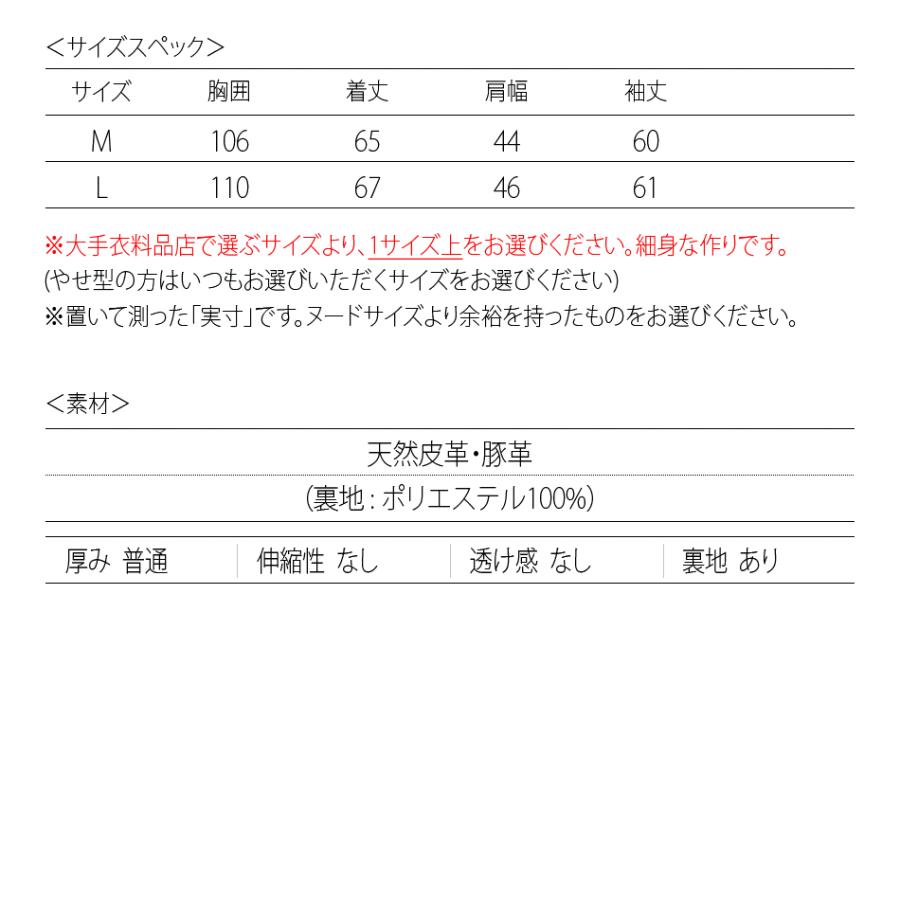 ＜サイズスペック＞
サイズ 胸囲 着丈 肩幅 袖丈
M 106 65 44 60
L 110 67 46 61
※大手衣料品店で選ぶサイズより、1サイズ上をお選びください。細身な作りです。
(やせ型の方はいつもお選びいただくサイズをお選びください)
※置いて測った「実寸」です。ヌードサイズより余裕を持ったものをお選びください。
＜素材＞
天然皮革・豚革
(裏地 : ポリエステル100%)
厚み 普通 伸縮性 なし 透け感 なし 裏地 あり